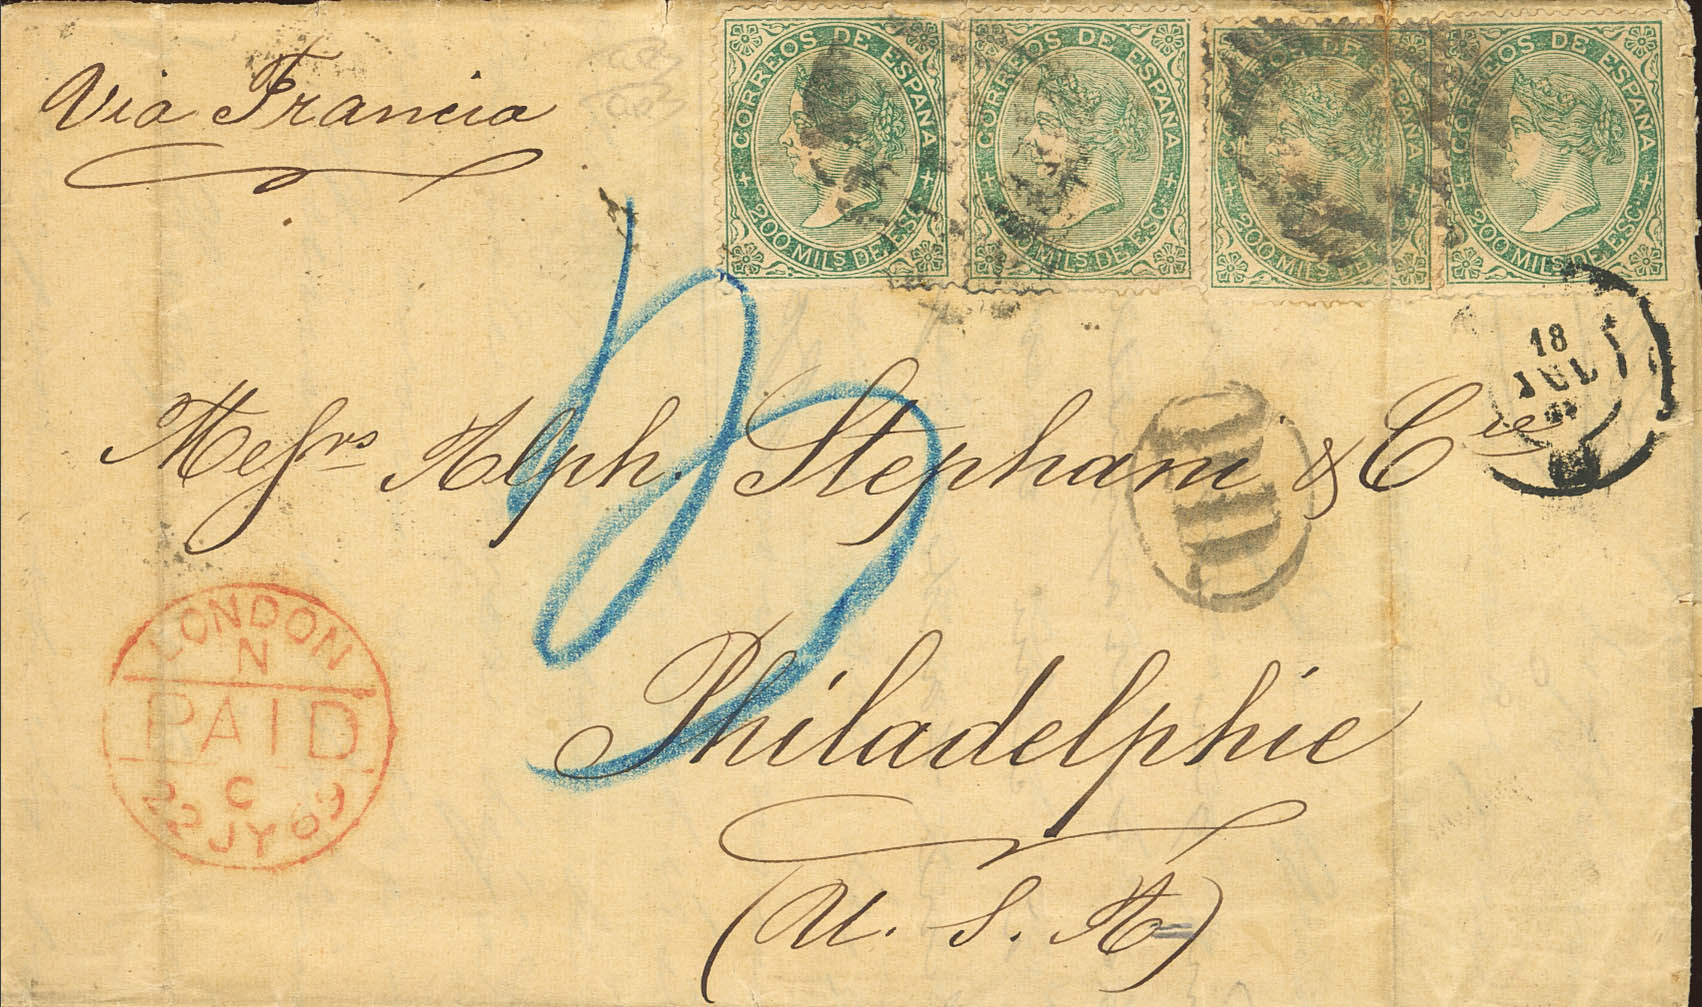 Via Francia
CORREOS DE ESPAÑA
200 MILS DE ESC
CORREOS DE ESPAÑA
MILS DE ESC
CORREOS DE ESPAÑA
200 MILS DE
CORREOS DE ESPAÑA
200 MILS DE ESC
18
JUL
Messrs Alph. Stephani & Cie
LONDON
N
PAID
C
22 JY 69
Philadelphie
(U. S. A)